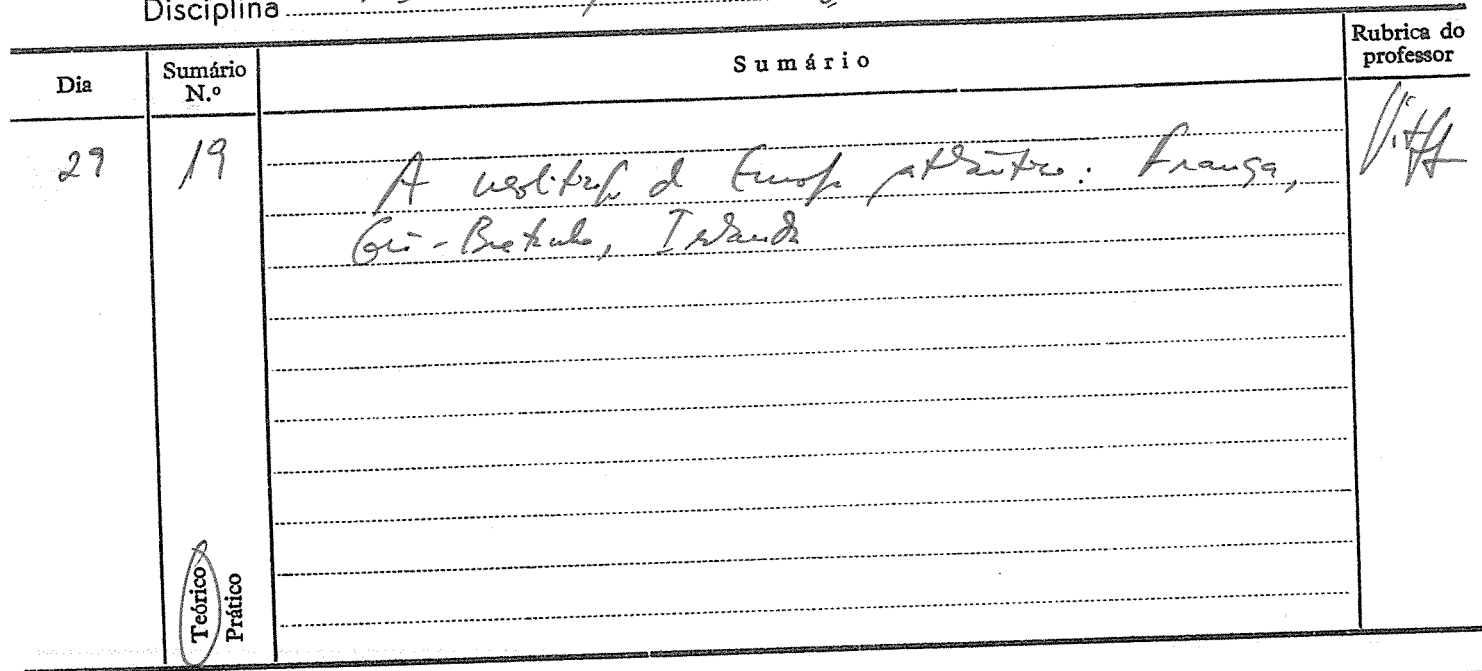 Disciplina
Dia
Sumário N.º
Sumário
Rubrica do professor
29
19
A neolitização da Europa atlântica: França,
Grã-Bretanha, Irlanda
Teórico
Prático